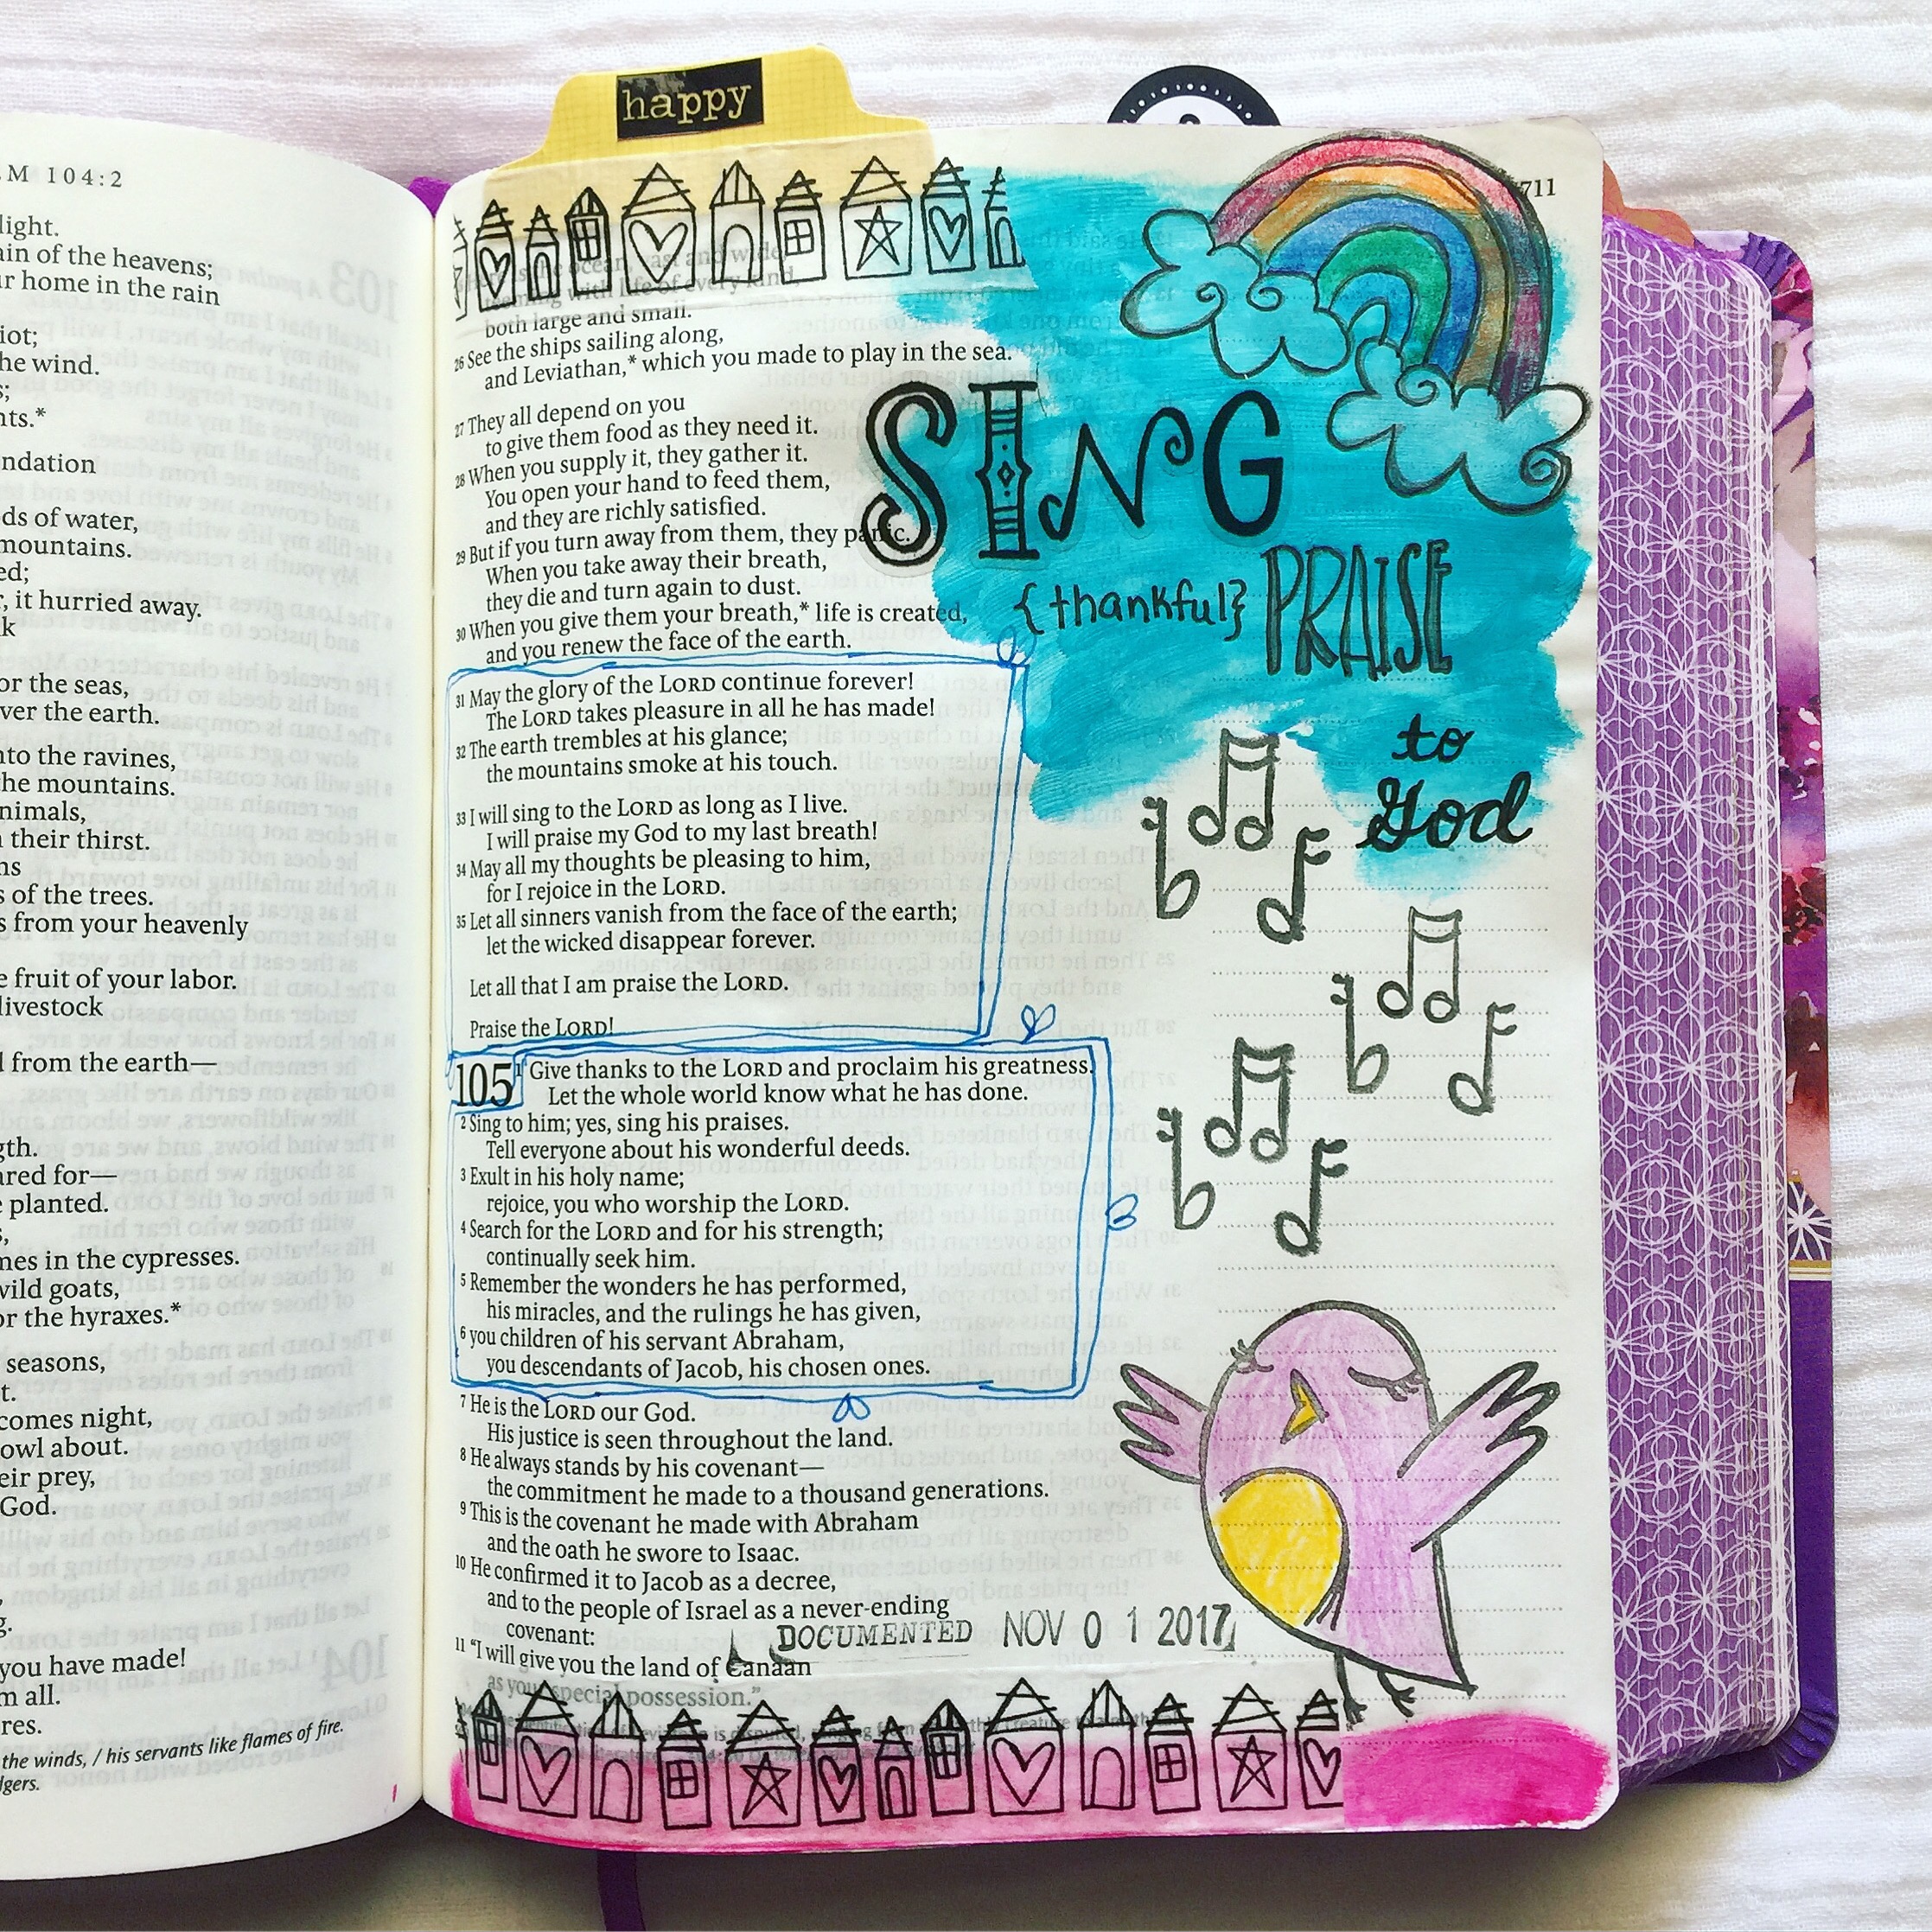 M 104:2
light.
ain of the heavens;
ur home in the rain
iot;
he wind.
s;
nts.*
ndation
ds of water,
mountains.
ed;
r, it hurried away.
k
or the seas,
ver the earth.
nto the ravines,
he mountains.
nimals,
n their thirst.
ns
s of the trees.
s from your heavenly
e fruit of your labor.
livestock
d from the earth—
gth.
ared for—
e planted.
s,
mes in the cypresses.
wild goats,
or the hyraxes.*
seasons,
t.
comes night,
owl about.
eir prey,
God.
g.
you have made!
m all.
res.
the winds, / his servants like flames of fire.
dgers.
happy
711
is the ocean, vast and wide,
teeming with life of every kind,
both large and small.
26 See the ships sailing along,
and Leviathan,* which you made to play in the sea.
27 They all depend on you
to give them food as they need it.
28 When you supply it, they gather it.
You open your hand to feed them,
and they are richly satisfied.
29 But if you turn away from them, they panic.
When you take away their breath,
they die and turn again to dust.
30 When you give them your breath,* life is created,
and you renew the face of the earth.
31 May the glory of the LORD continue forever!
The LORD takes pleasure in all he has made!
32 The earth trembles at his glance;
the mountains smoke at his touch.
33 I will sing to the LORD as long as I live.
I will praise my God to my last breath!
34 May all my thoughts be pleasing to him,
for I rejoice in the LORD.
35 Let all sinners vanish from the face of the earth;
let the wicked disappear forever.
Let all that I am praise the LORD.
Praise the LORD!
105 1 Give thanks to the LORD and proclaim his greatness.
Let the whole world know what he has done.
2 Sing to him; yes, sing his praises.
Tell everyone about his wonderful deeds.
3 Exult in his holy name;
rejoice, you who worship the LORD.
4 Search for the LORD and for his strength;
continually seek him.
5 Remember the wonders he has performed,
his miracles, and the rulings he has given,
6 you children of his servant Abraham,
you descendants of Jacob, his chosen ones.
7 He is the LORD our God.
His justice is seen throughout the land.
8 He always stands by his covenant—
the commitment he made to a thousand generations.
9 This is the covenant he made with Abraham
and the oath he swore to Isaac.
10 He confirmed it to Jacob as a decree,
and to the people of Israel as a never-ending
covenant:
11 “I will give you the land of Canaan
as your special possession.”
SING
{thankful} PRAISE
to
God
DOCUMENTED NOV 0 1 2017